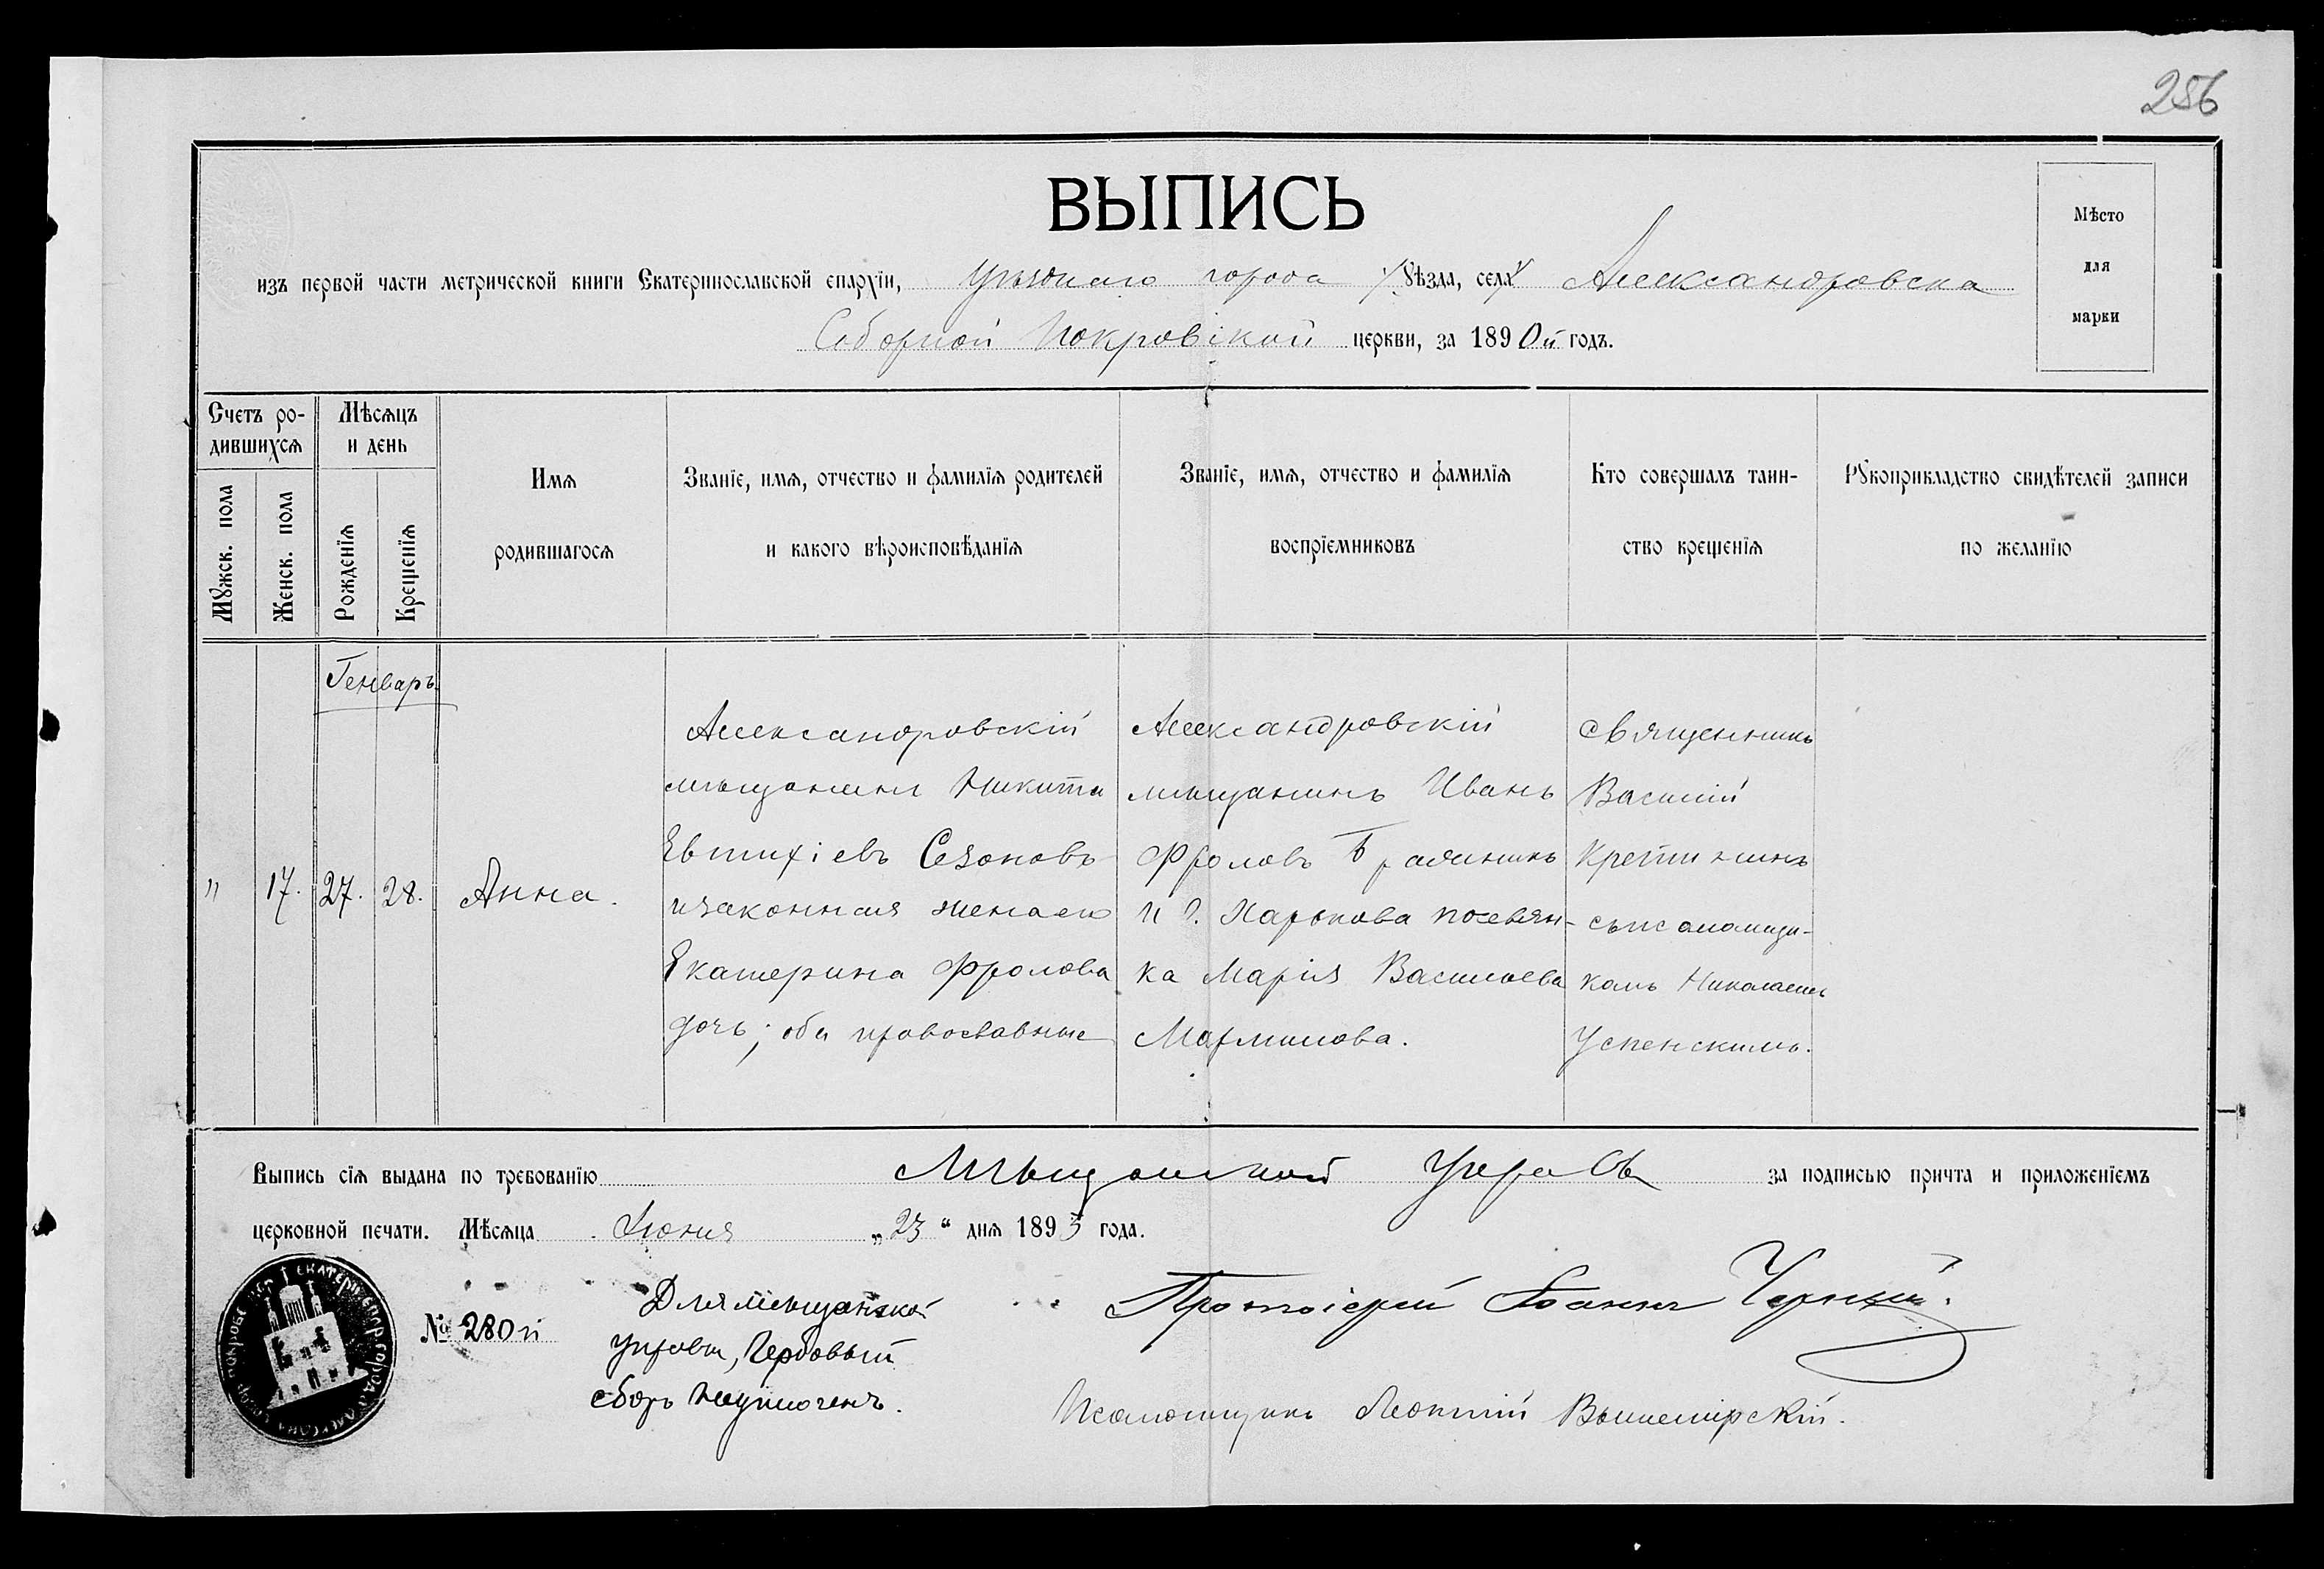 256
ВЫПИСЬ
Мѣсто
для
марки
изъ первой части метрической книги Екатеринославской епархіи, Уѣзднаго города Уѣзда, села Александровска
Соборной Покровской церкви, за 1890й годъ.
Счетъ ро-
дившихся
Мѣсяцъ
и день
Мужск. пола
Женск. пола
Рожденія
Крещенія
Имя
родившагося
Званіе, имя, отчество и фамилія родителей
и какого вѣроисповѣданія
Званіе, имя, отчество и фамилія
воспріемниковъ
Кто совершалъ таин-
ство крещенія
Рукоприкладство свидѣтелей записи
по желанію
Генварь
" 17. 27. 28. Анна.
Александровскій
мѣщанинъ Никита
Евтихіевъ Сезоновъ
и законная жена его
Екатерина Фролова
дочь; оба православные
Александровскій
мѣщанинъ Иванъ
Фроловъ
и г. Харькова
ка Марія Васильева
Священникъ
Василій
съ псаломщи-
комъ Николаемъ
Успенскимъ.
Выпись сія выдана по требованію Мѣщанской Управы за подписью причта и приложеніемъ
церковной печати. Мѣсяца Іюня „23“ дня 1893 года.
№ 280й
Для мѣщанской
управы, Гербовый
сборъ неуплоченъ.
Протоіерей Іоаннъ Черный.
Псаломщикъ Леонтій Вышемірскій.